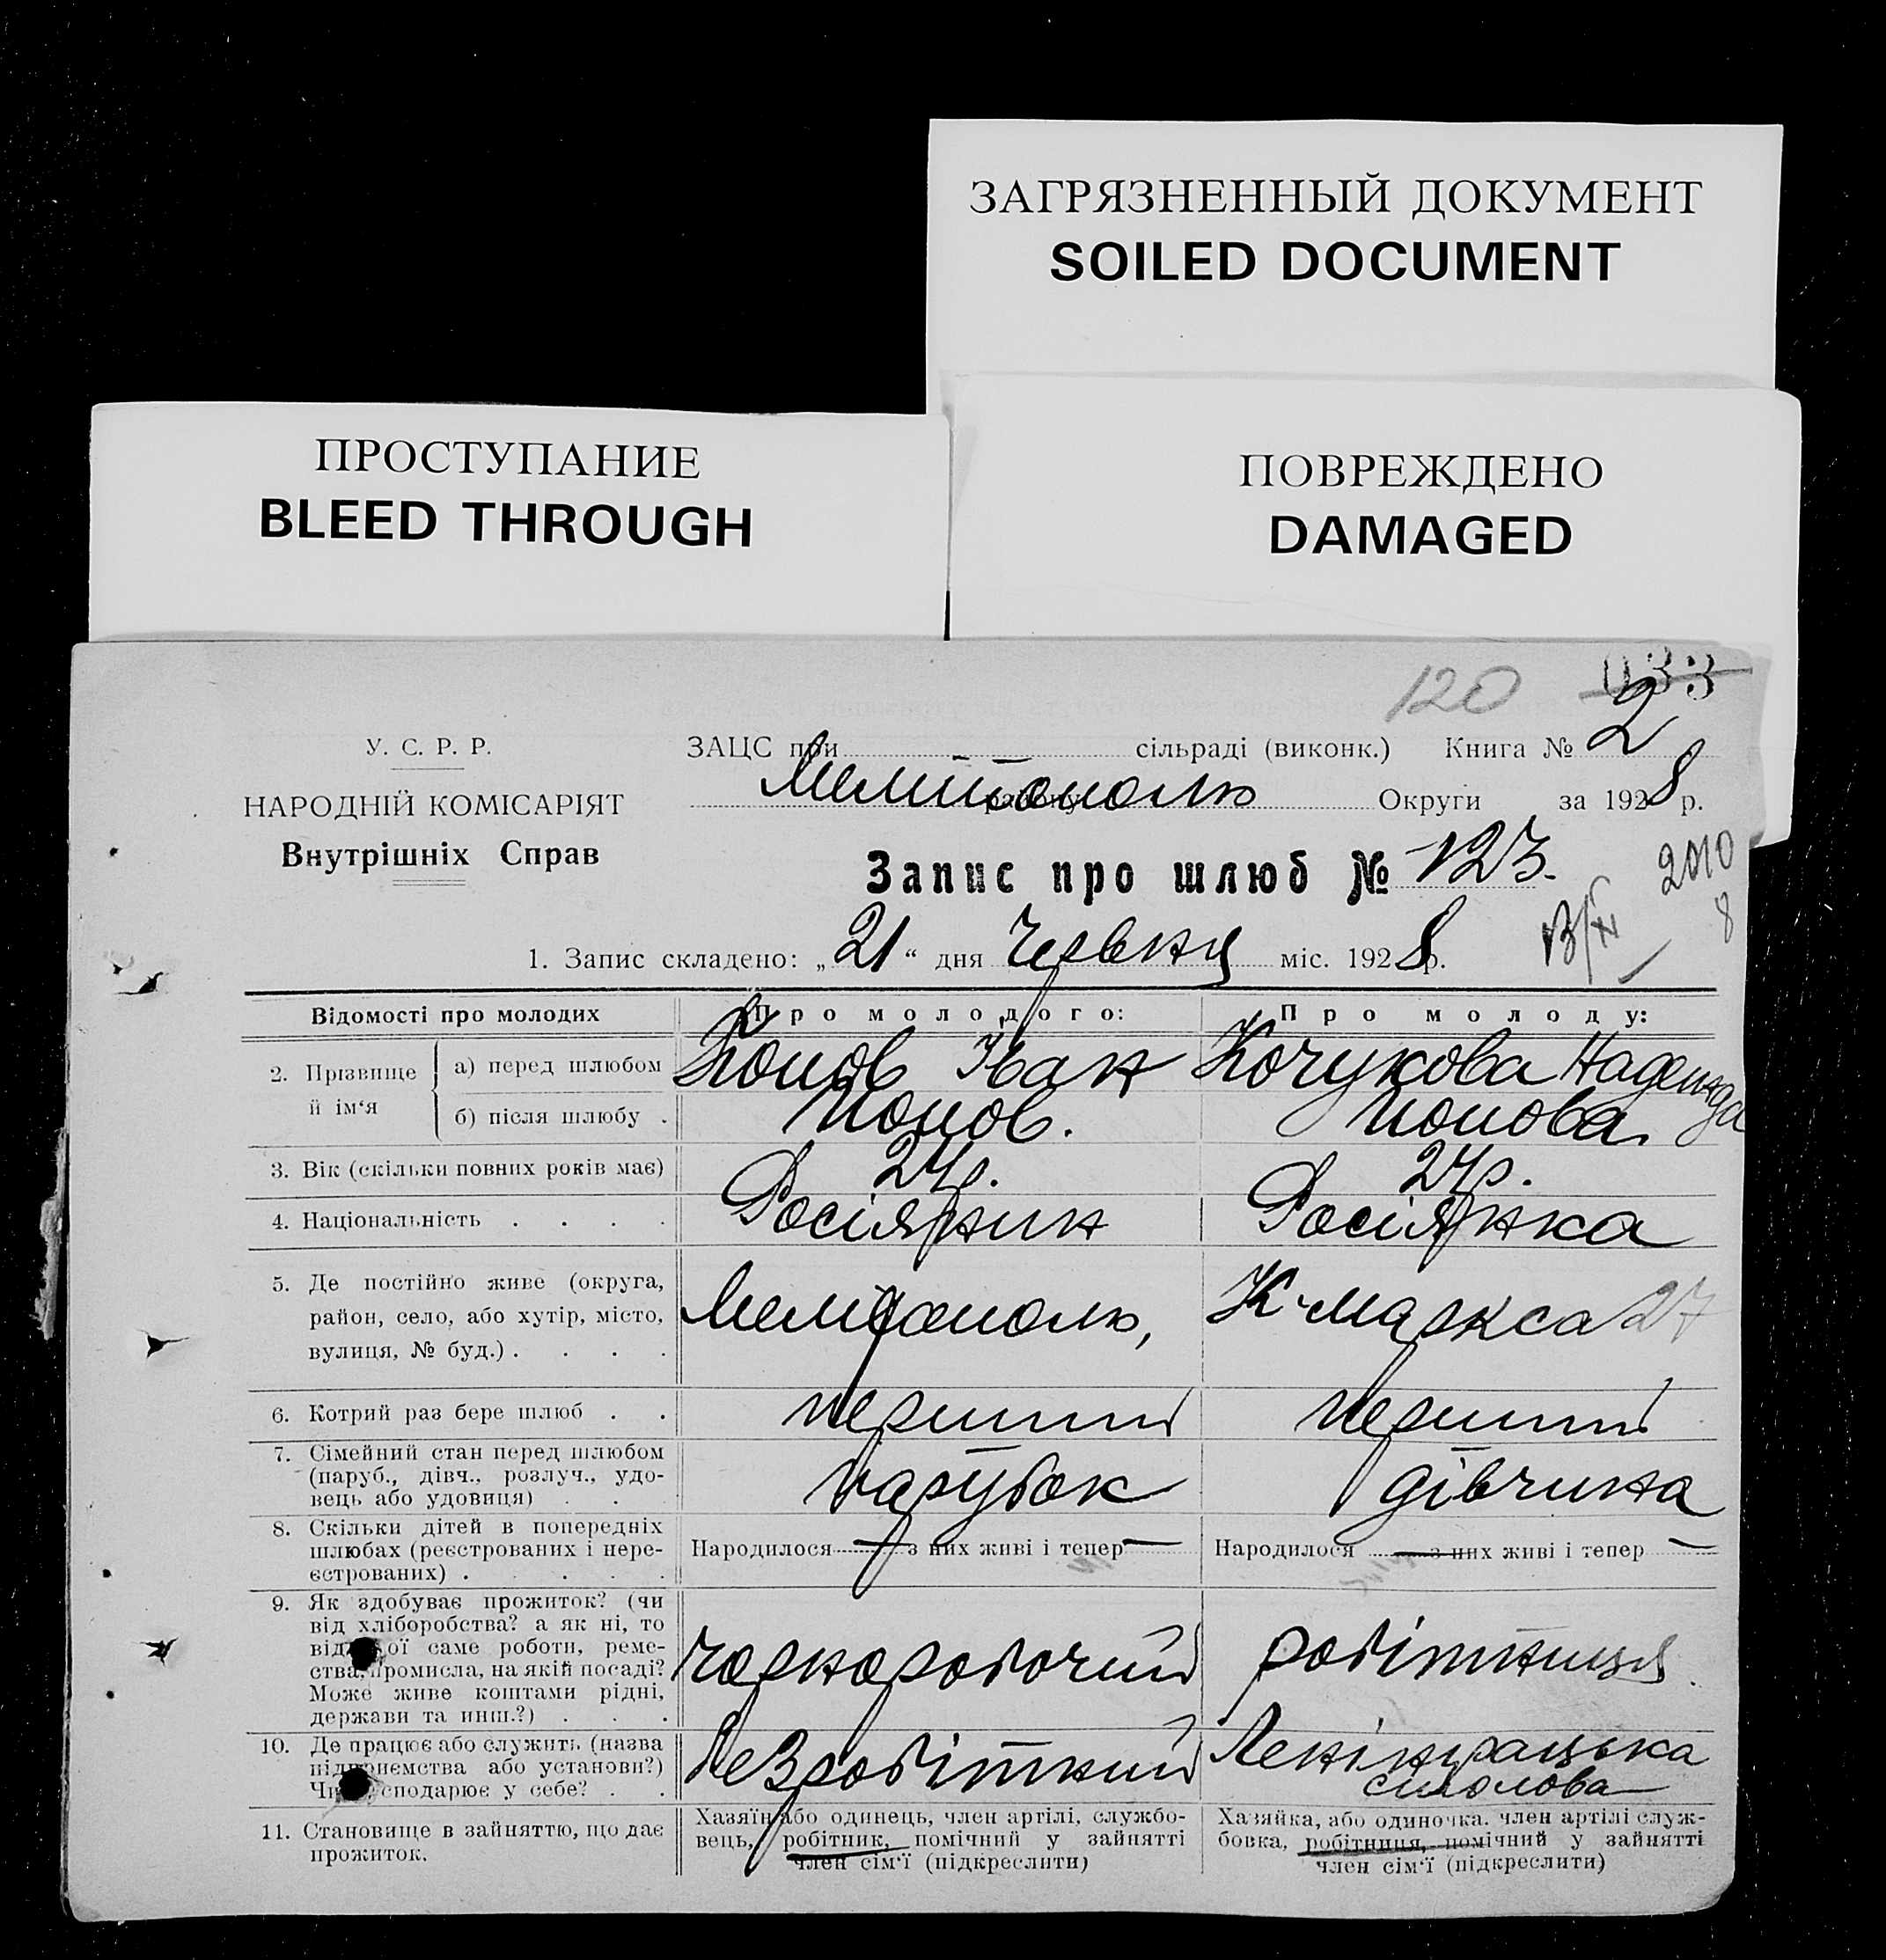 ЗАГРЯЗНЕННЫЙ ДОКУМЕНТ
SOILED DOCUMENT
ПРОСТУПАНИЕ
BLEED THROUGH
ПОВРЕЖДЕНО
DAMAGED
120 033
У. С. Р. Р.
ЗАЦС при сільраді (виконк.) Книга № 2
НАРОДНІЙ КОМІСАРІЯТ
Внутрішніх Справ
Мелітополь Округи за 1928 р.
Запис про шлюб № 123.
2010
8
1. Запис складено: „21“ дня Червня міс. 1928 р.
Відомості про молодих
Про молодого:
Про молоду:
2. Прізвище й ім‘я
а) перед шлюбом
Попов Іван
Кочукова Надежда
б) після шлюбу .
Попов.
Попова
3. Вік (скільки повних років має)
24р.
24р.
4. Національність . . . .
Росіянин
Росіянка
5. Де постійно живе (округа,
район, село, або хутір, місто,
вулиця, № буд.) . . . .
Мелітополь,
К-Маркса 27
6. Котрий раз бере шлюб . .
перший
перший
7. Сімейний стан перед шлюбом
(паруб., дівч., розлуч., удо-
вець або удовиця) . .
парубок
дівчина
8. Скільки дітей в попередніх
шлюбах (реєстрованих і нере-
єстрованих) . . . . .
Народилося — з них живі і тепер —
Народилося — з них живі і тепер —
9. Як здобуває прожиток? (чи
від хліборобства? а як ні, то
від ої саме роботи, реме-
ства, промисла, на якій посаді?
Може живе коштами рідні,
держави та инш.?) . . .
чорноробочий
робітниця
10. Де працює або служить (назва
підприємства або установи?)
Чи сподарює у себе? . .
Безробітний
Ленінградська
столова
11. Становище в зайняттю, що дає
прожиток.
Хазяїн або одинець, член артілі, службо-
вець, робітник, помічний у зайнятті
член сім‘ї (підкреслити)
Хазяйка, або одиночка. член артілі служ-
бовка, робітниця, помічний у зайнятті
член сім‘ї (підкреслити)